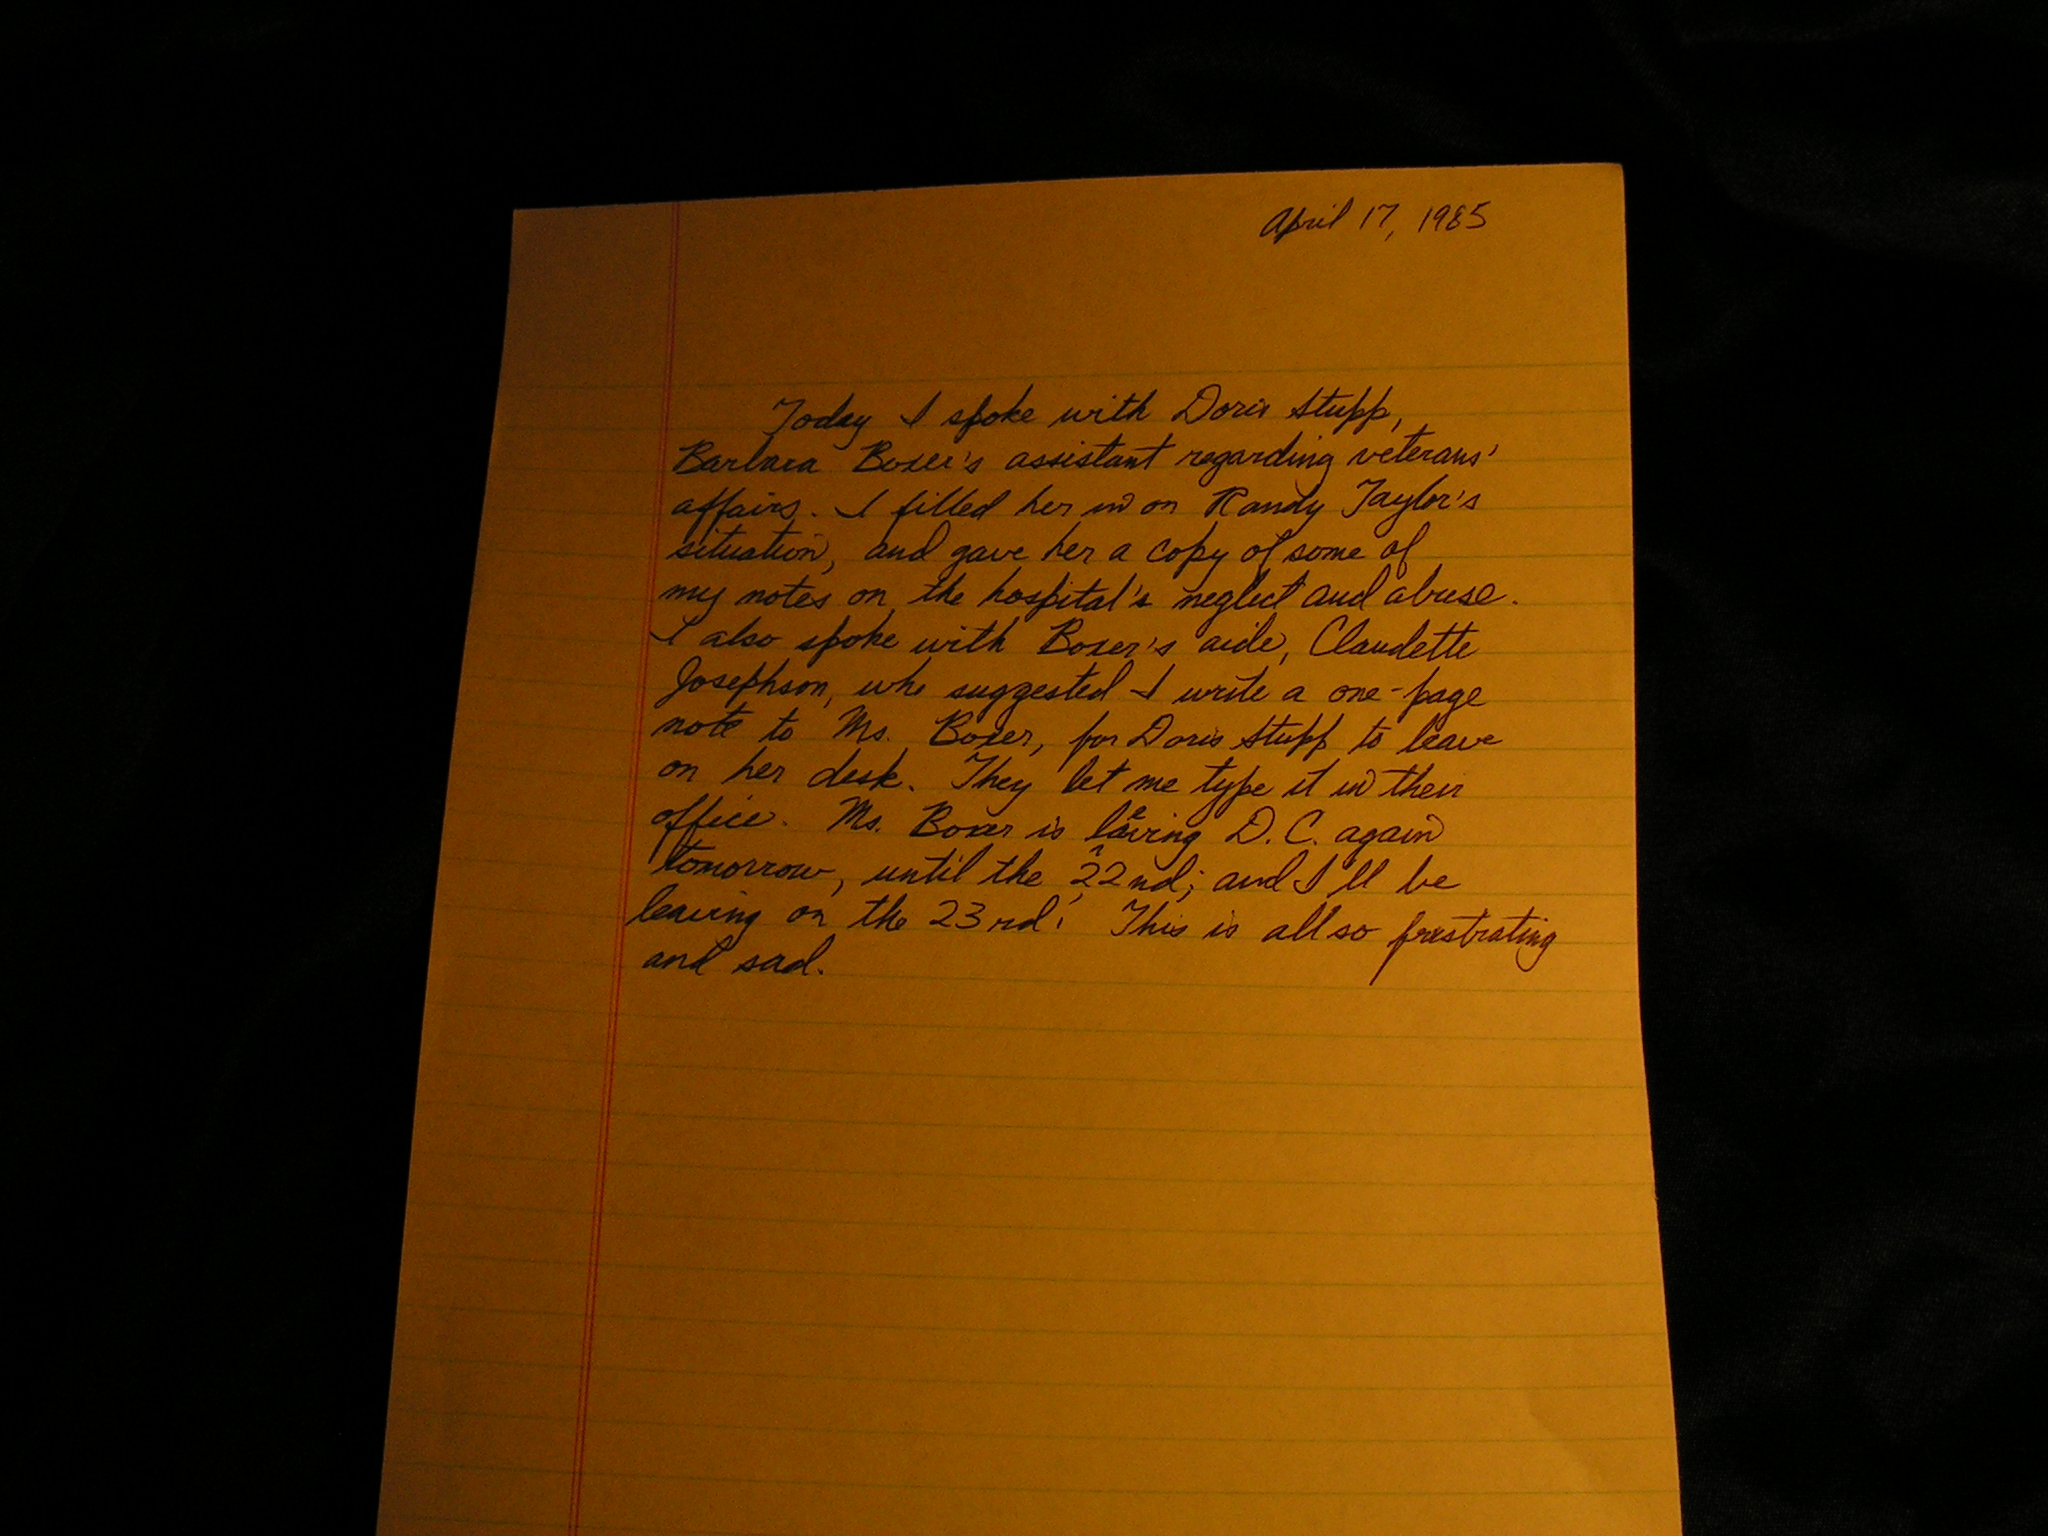 April 17, 1985
Today I spoke with Doris Stupp,
Barbara Boxer's assistant regarding veterans'
affairs. I filled her in on Randy Taylor's
situation, and gave her a copy of some of
my notes on the hospital's neglect and abuse.
I also spoke with Boxer's aide, Claudette
Josephson, who suggested I write a one-page
note to Ms. Boxer, for Doris Stupp to leave
on her desk. They let me type it in their
office. Ms. Boxer is leaving D.C. again
tomorrow, until the 22nd; and I'll be
leaving on the 23rd! This is all so frustrating
and sad.